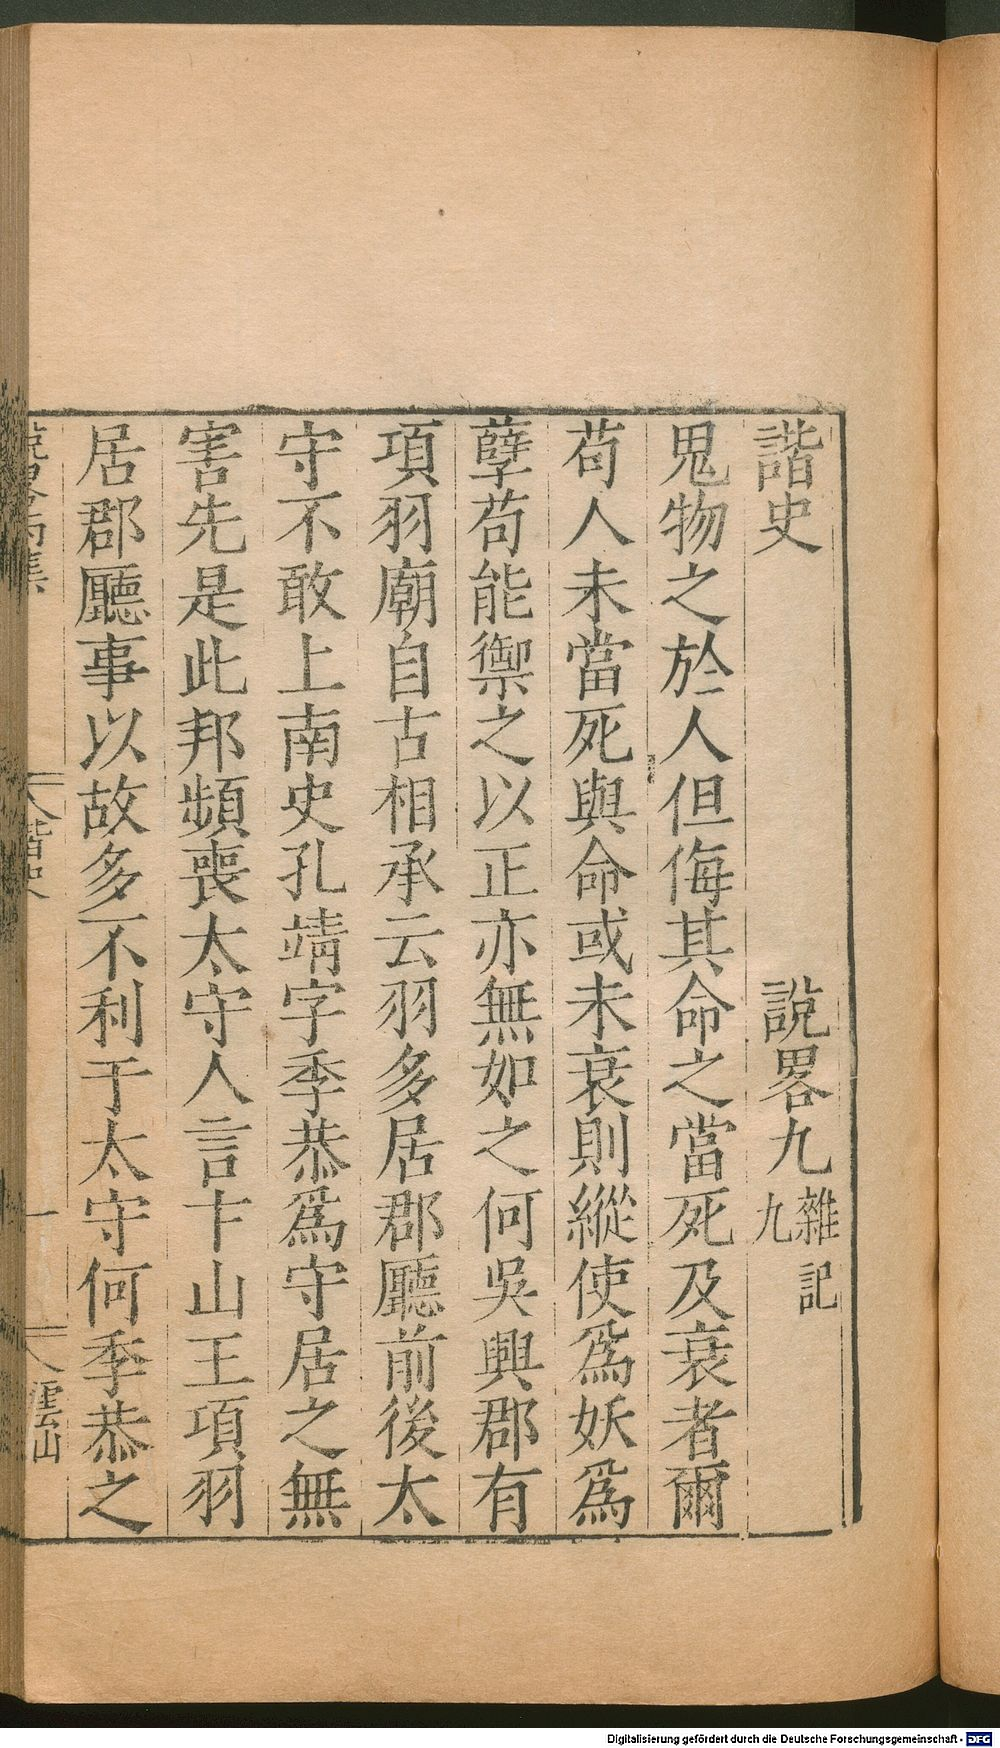 諧史　說畧九　雜記九
鬼物之於人但侮其命之當死及衰者爾
苟人未當死與命或未衰則縱使爲妖爲
孽苟能禦之以正亦無如之何吳興郡有
項羽廟自古相承云羽多居郡廳前後太
守不敢上南史孔靖字季恭爲守居之無
害先是此邦頻喪太守人言卞山王項羽
居郡廳事以故多不利于太守何季恭之
諧史
一
雲山
Digitalisierung gefördert durch die Deutsche Forschungsgemeinschaft - DFG